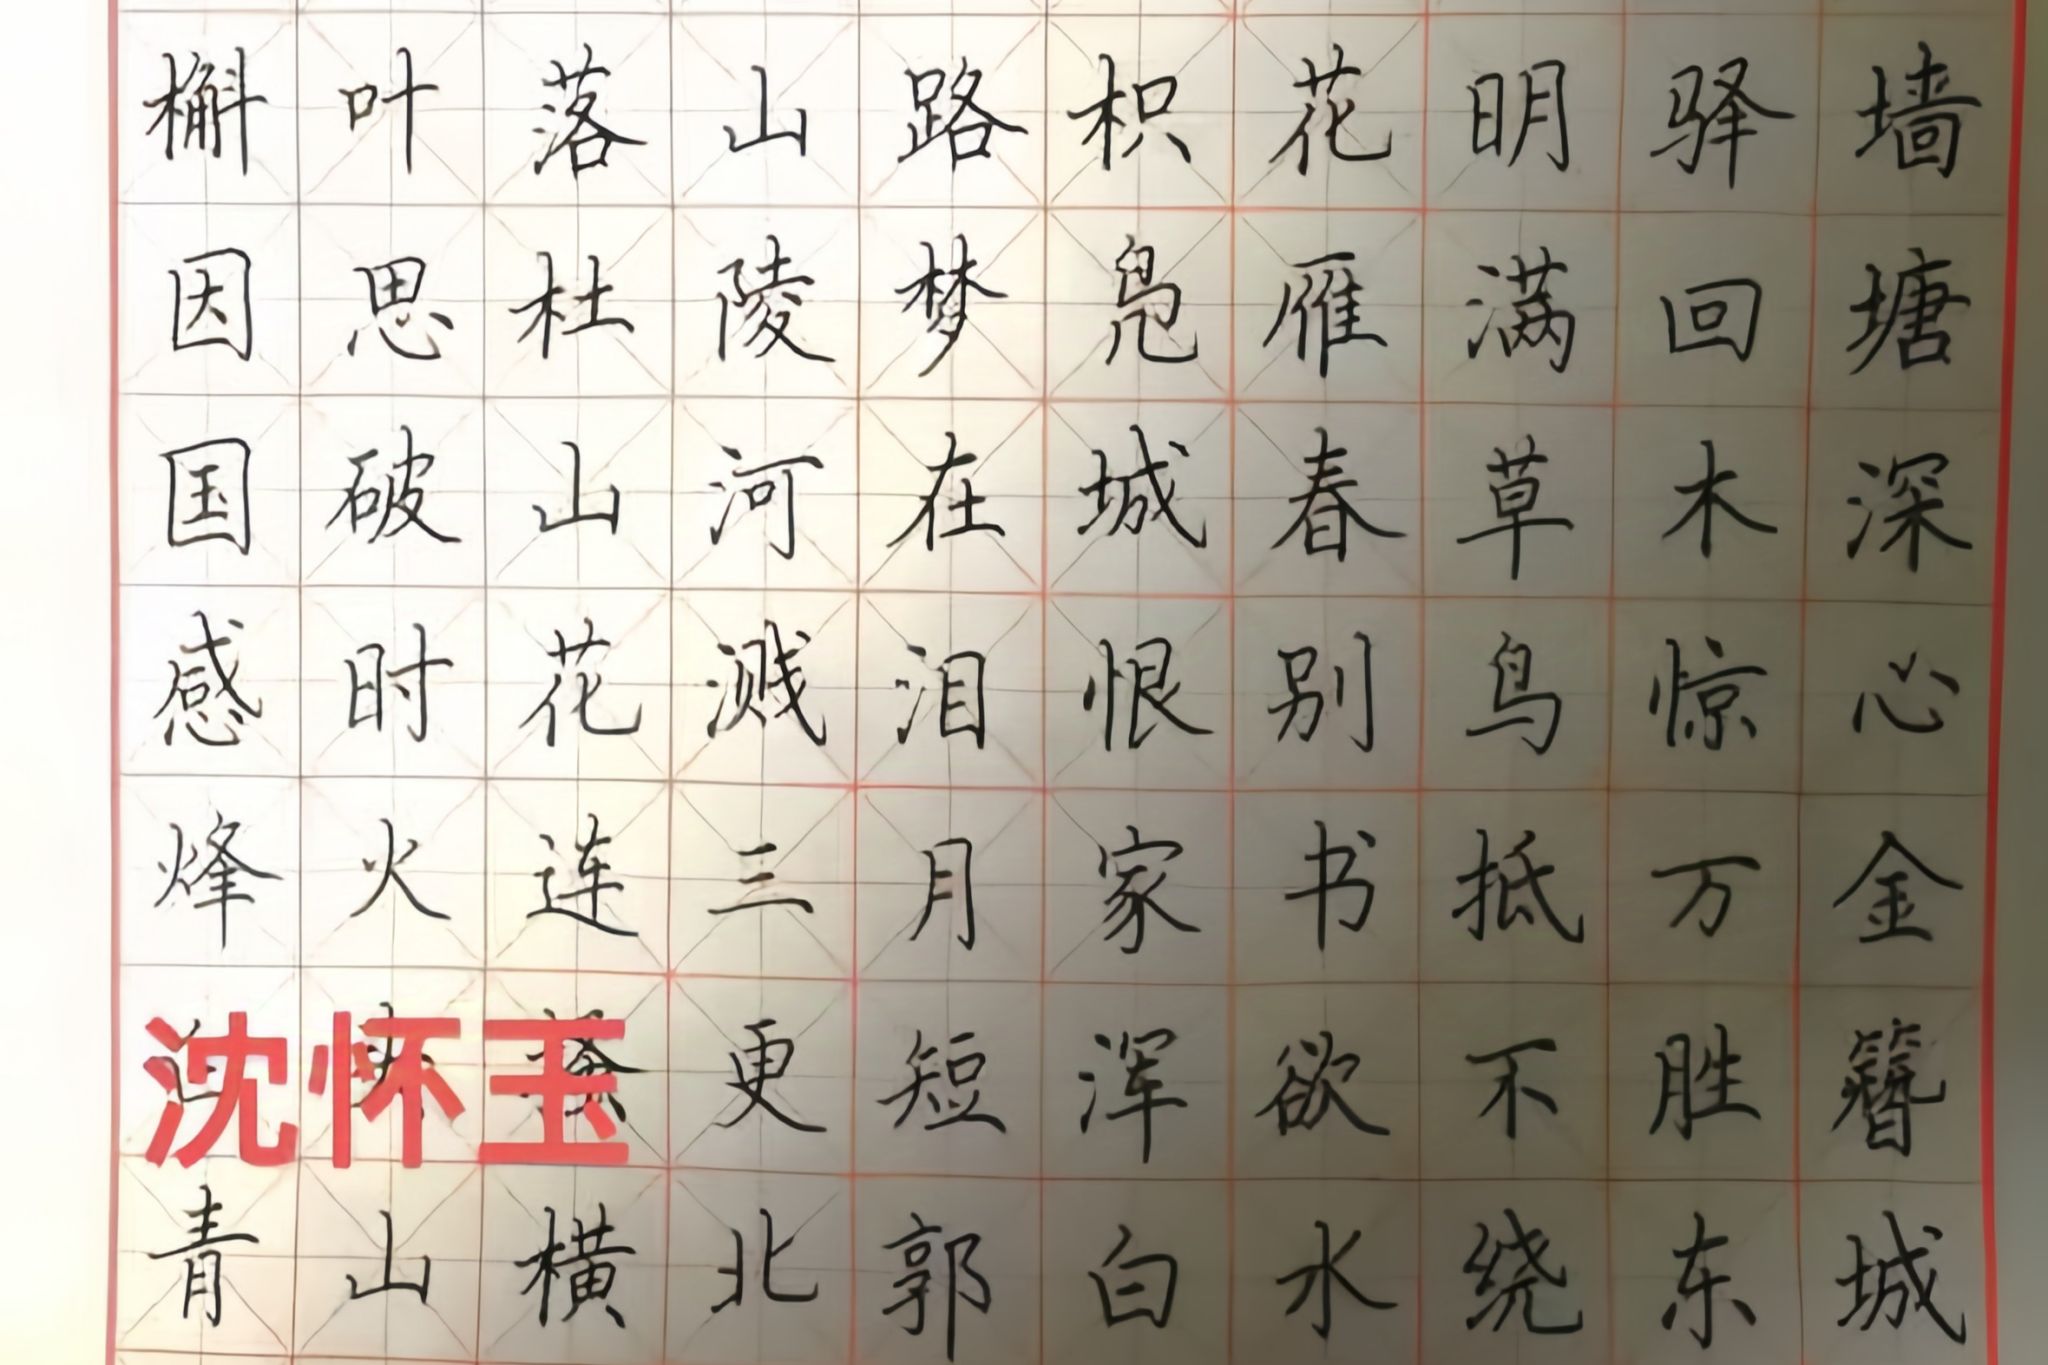 槲叶落山路枳花明驿墙
因思杜陵梦凫雁满回塘
国破山河在城春草木深
感时花溅泪恨别鸟惊心
烽火连三月家书抵万金
沈怀玉
更短浑欲不胜簪
青山横北郭白水绕东城